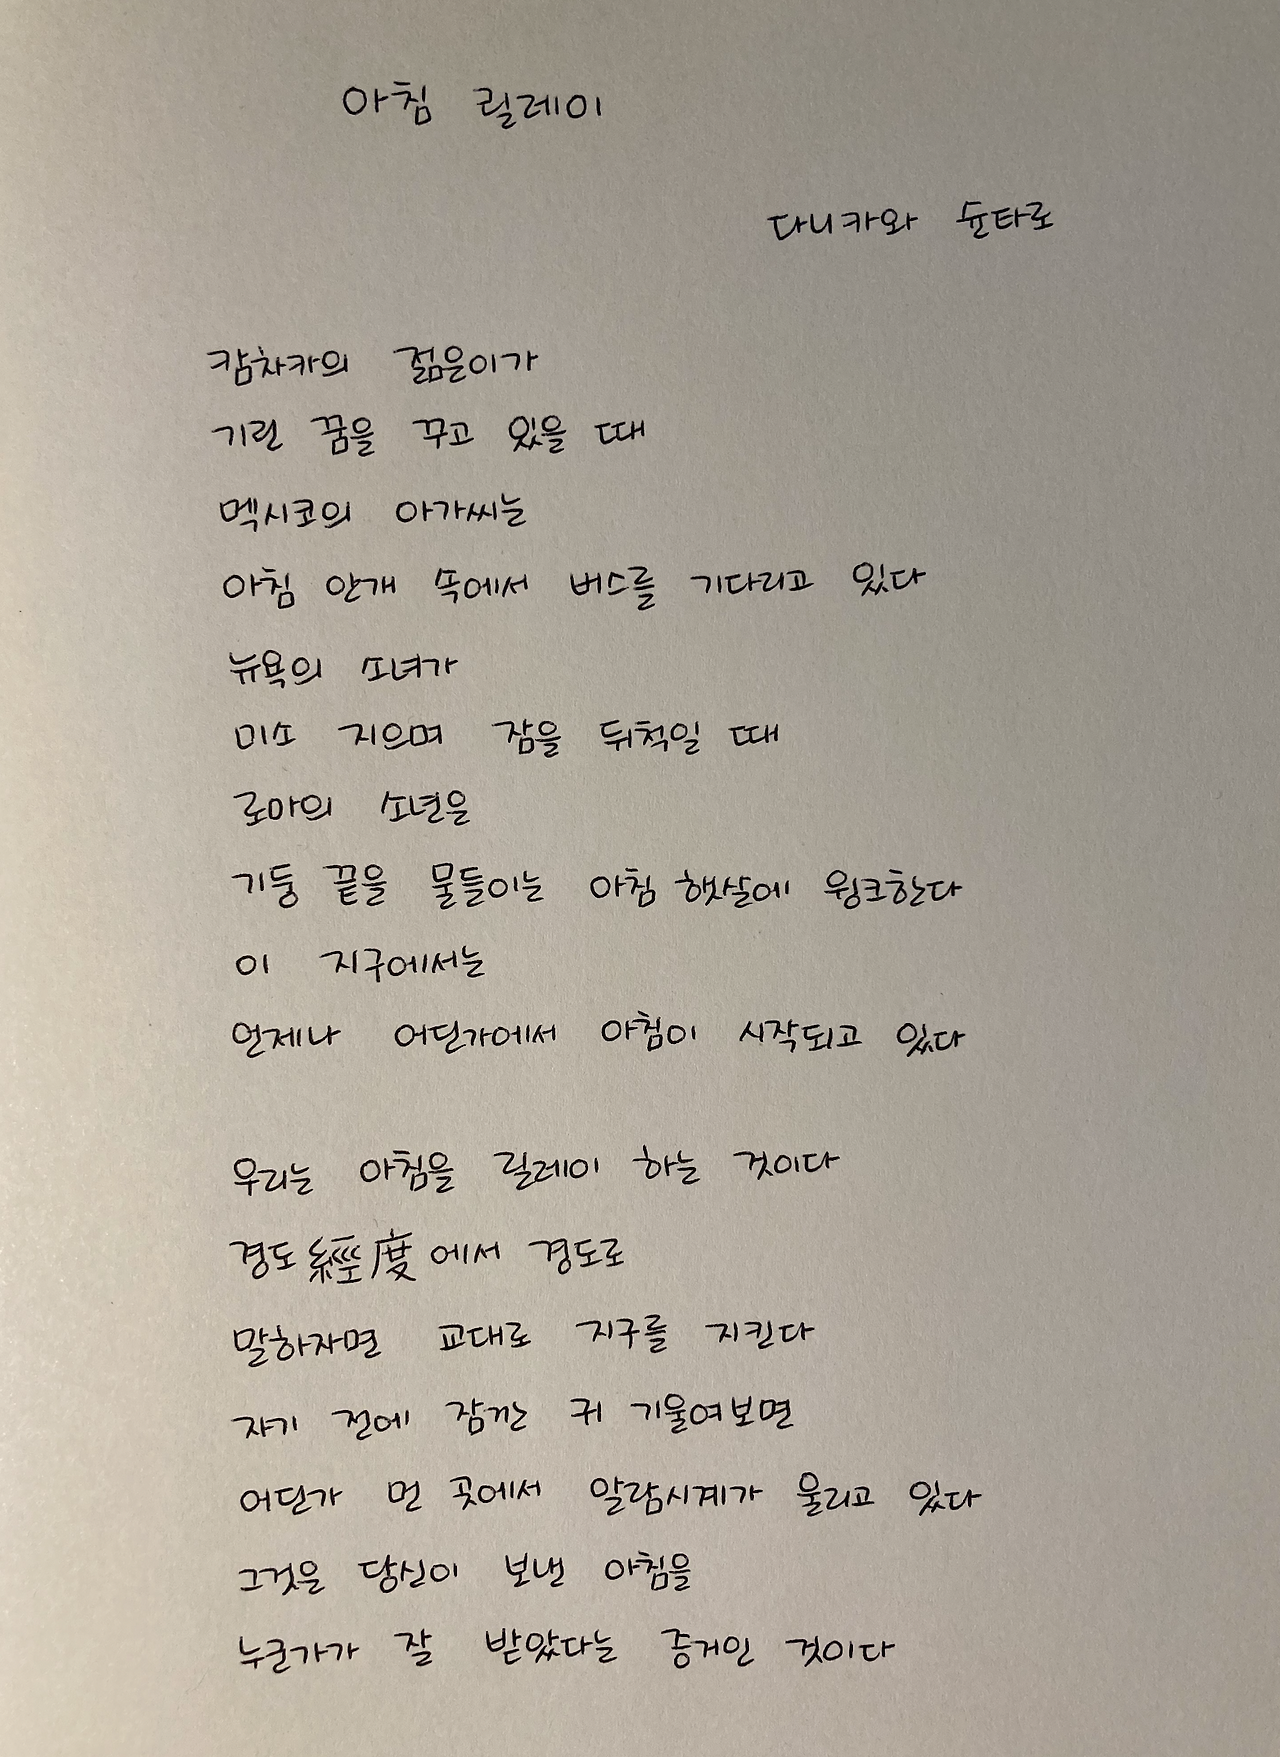 아침 릴레이
다니카와 슌타로
캄차카의 젊은이가
기린 꿈을 꾸고 있을 때
멕시코의 아가씨는
아침 안개 속에서 버스를 기다리고 있다
뉴욕의 소녀가
미소 지으며 잠을 뒤척일 때
로마의 소년은
기둥 끝을 물들이는 아침 햇살에 윙크한다
이 지구에서는
언제나 어딘가에서 아침이 시작되고 있다
우리는 아침을 릴레이 하는 것이다
경도經度에서 경도로
말하자면 교대로 지구를 지킨다
자기 전에 잠깐 귀 기울여보면
어딘가 먼 곳에서 알람시계가 울리고 있다
그것은 당신이 보낸 아침을
누군가가 잘 받았다는 증거인 것이다